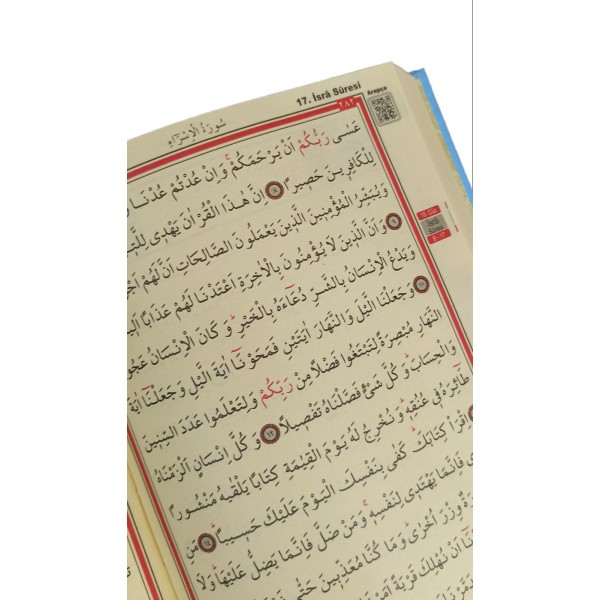 17. İsrâ Sûresi
Arapça
سُورَةُ الْاِسْرَٓاءِ
٢٨٢
عَسٰى رَبُّكُمْ اَنْ يَرْحَمَكُمْ وَاِنْ عُدْتُمْ عُدْنَا
لِلْكَافِر۪ينَ حَص۪يرًا ٨ اِنَّ هٰذَا الْقُرْاٰنَ يَهْد۪ي
وَيُبَشِّرُ الْمُؤْمِن۪ينَ الَّذ۪ينَ يَعْمَلُونَ الصَّالِحَاتِ اَنَّ لَهُمْ
٩ وَاَنَّ الَّذ۪ينَ لَا يُؤْمِنُونَ بِالْاٰخِرَةِ اَعْتَدْنَا لَهُمْ عَذَابًا
وَيَدْعُ الْاِنْسَانُ بِالشَّرِّ دُعَٓاءَهُ بِالْخَيْرِ وَكَانَ الْاِنْسَانُ
١١ وَجَعَلْنَا الَّيْلَ وَالنَّهَارَ اٰيَتَيْنِ فَمَحَوْنَٓا اٰيَةَ الَّيْلِ وَجَعَلْنَٓا اٰيَةَ
النَّهَارِ مُبْصِرَةً لِتَبْتَغُوا فَضْلًا مِنْ رَبِّكُمْ وَلِتَعْلَمُوا عَدَدَ السِّن۪ينَ
وَالْحِسَابَ وَكُلَّ شَيْءٍ فَصَّلْنَاهُ تَفْص۪يلًا ١٢ وَكُلَّ اِنْسَانٍ اَلْزَمْنَاهُ
طَٓائِرَهُ ف۪ي عُنُقِه۪ وَنُخْرِجُ لَهُ يَوْمَ الْقِيٰمَةِ كِتَابًا يَلْقٰيهُ مَنْشُورًا
اِقْرَأْ كِتَابَكَ كَفٰى بِنَفْسِكَ الْيَوْمَ عَلَيْكَ حَس۪يبًا ١٤ مَنِ
فَاِنَّمَا يَهْتَد۪ي لِنَفْسِه۪ وَمَنْ ضَلَّ فَاِنَّمَا يَضِلُّ عَلَيْهَا وَلَا
وِزْرَ اُخْرٰى وَمَا كُنَّا مُعَذِّب۪ينَ حَتّٰى
اَنْ نُهْلِكَ قَرْيَةً